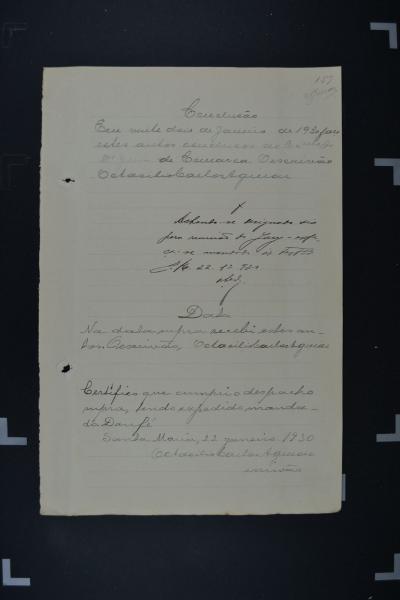 157
Conclusão
Em vinte dois de Janeiro de 1930 faço
estes autos conclusos ao
de Comarca O escrivão
Octacilio Carlos Aguiar
Achando-se designado dia
para reunião do Jury
se mandado
22.1.930
Data
Na data supra recebi estes au-
tos. O escrivão, Octacilio Carlos Aguiar
Certifico que cumpri o despacho
supra, tendo expedido manda-
do. Dou fé
Santa Maria, 22 janeiro 1930
Octacilio Carlos Aguiar
escrivão